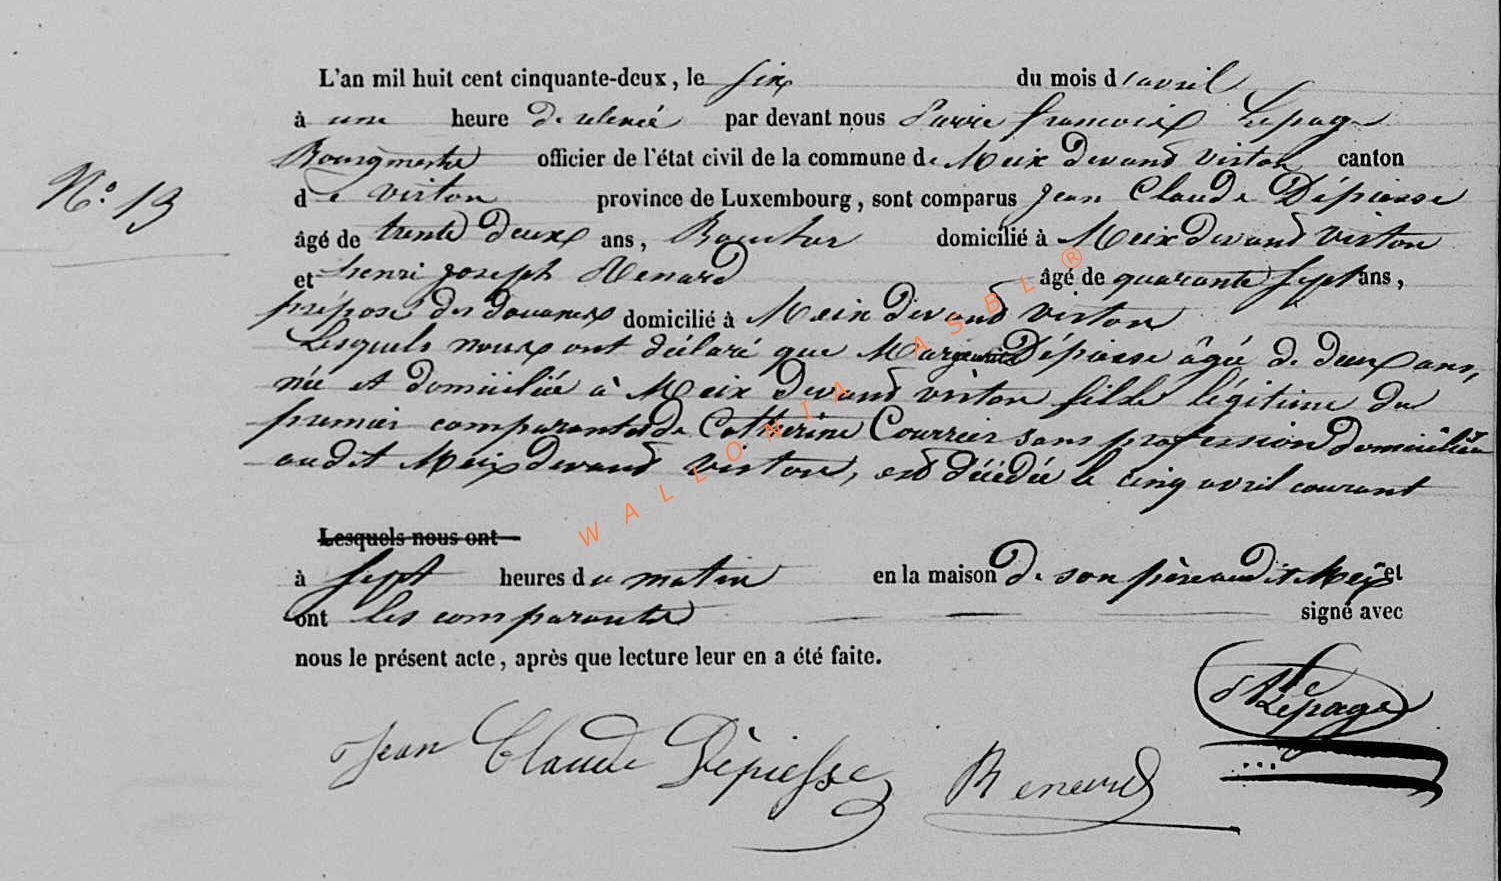 L'an mil huit cent cinquante-deux, le six du mois d'avril
à une heure de relevée par devant nous Pierre françois Lepage
Bourgmestre officier de l'état civil de la commune de Meix devand virton canton
N.º 13
de virton province de Luxembourg, sont comparus Jean Claude Dépiesse
âgé de trente deux ans, domicilié à Meix devand virton
et henri joseph Renard âgé de quarante sept ans,
préposé des douanes domicilié à Meix devand virton
Lesquels nous ont déclaré que Dépiesse âgée de deux ans,
née et domiciliée à Meix devand virton fille légitime du
premier comparant et de Catherine Courrier sans profession domiciliée
audit Meix devand virton, est décédée le cinq avril courant
Lesquels nous ont
à sept heures du matin en la maison de son père audit Meix et
ont les comparants signé avec
nous le présent acte, après que lecture leur en a été faite.
Lepage
Jean Claude Dèpiesse Renard
WALLONIA ASBL ®